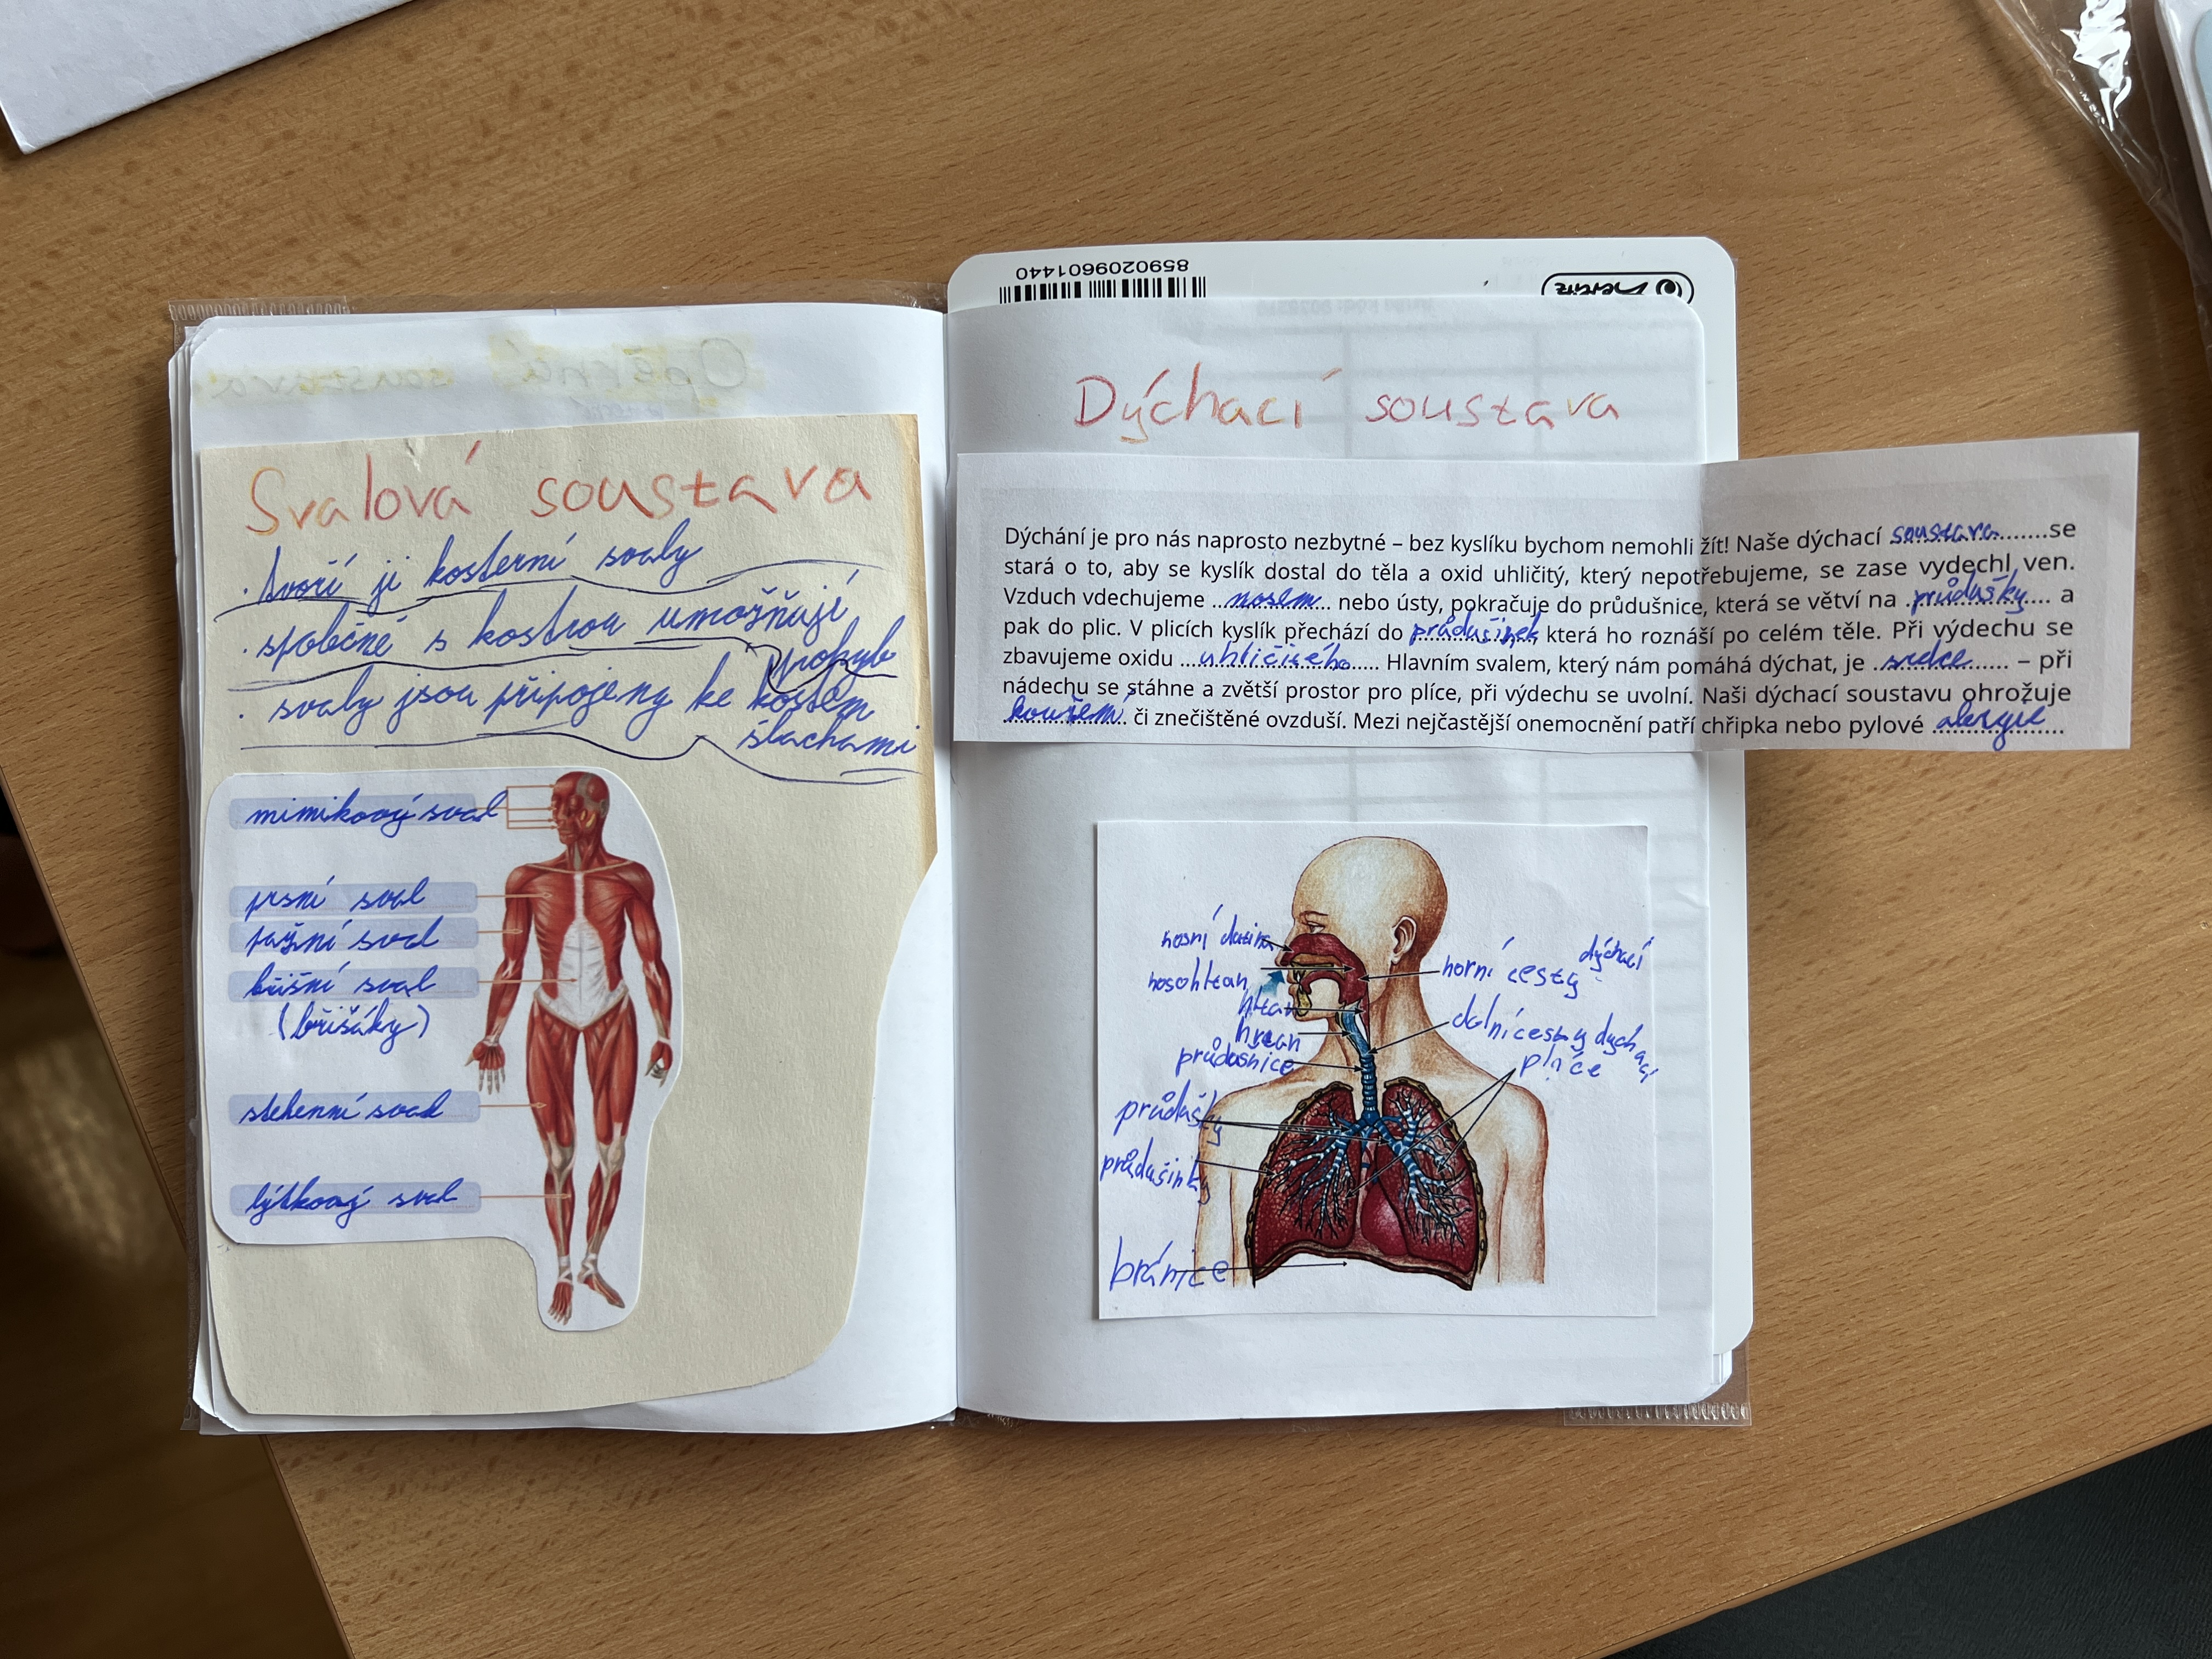 Svalová soustava
· tvoří ji kosterní svaly
· společně s kostrou umožňují
pohyb
· svaly jsou připojeny ke kostem
šlachami
mimikový sval
prsní sval
pažní sval
břišní sval
(břišáky)
stehenní sval
lýtkový sval
8590209601440
Dýchací soustava
Dýchání je pro nás naprosto nezbytné – bez kyslíku bychom nemohli žít! Naše dýchací soustava se
stará o to, aby se kyslík dostal do těla a oxid uhličitý, který nepotřebujeme, se zase vydechl ven.
Vzduch vdechujeme nosem nebo ústy, pokračuje do průdušnice, která se větví na průdušky a
pak do plic. V plicích kyslík přechází do průdušinek která ho roznáší po celém těle. Při výdechu se
zbavujeme oxidu uhličitého. Hlavním svalem, který nám pomáhá dýchat, je srdce – při
nádechu se stáhne a zvětší prostor pro plíce, při výdechu se uvolní. Naši dýchací soustavu ohrožuje
kouřem či znečištěné ovzduší. Mezi nejčastější onemocnění patří chřipka nebo pylové alergie
nosní dutina
nosohltan
hltan
hrtan
průdušnice
průdušky
průdušinky
bránice
horní cesty dýchací
dolní cesty dýchací
plíce